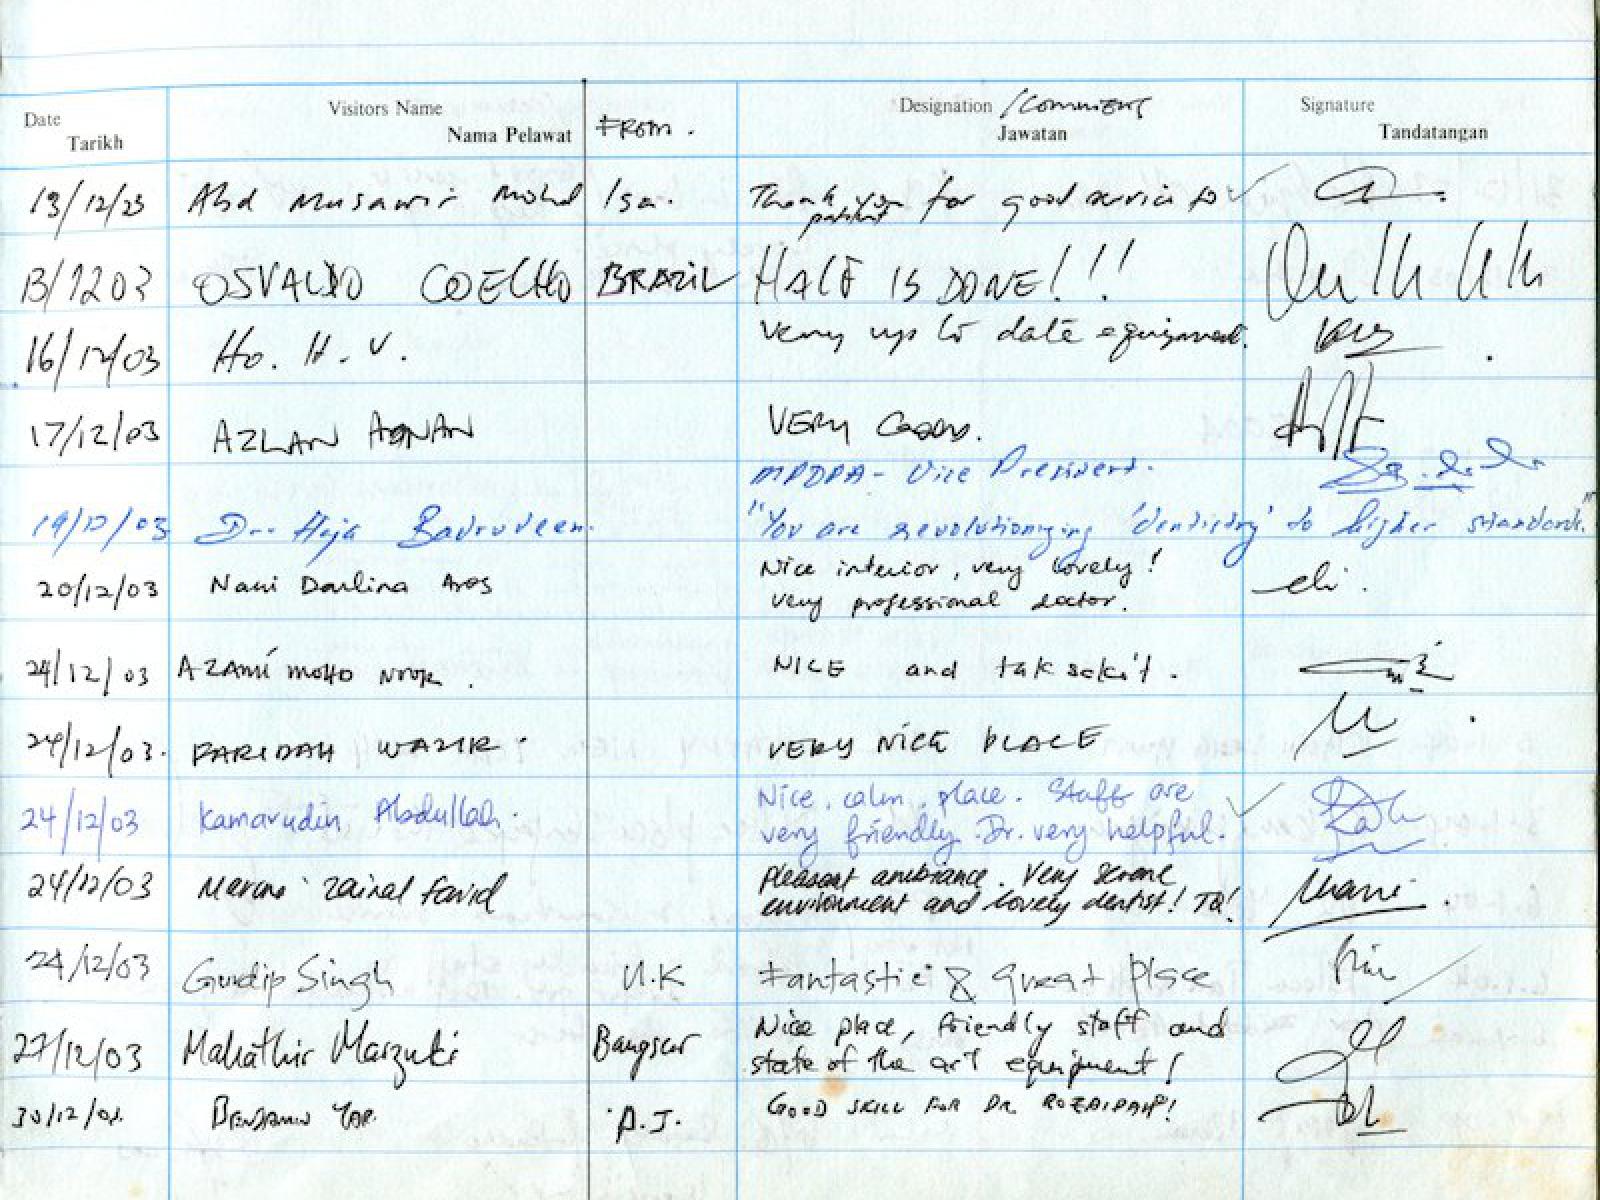 Date Tarikh Visitors Name Nama Pelawat FROM. Designation /Comments Jawatan Signature Tandatangan
13/12/23 Abd Musawir Mohd Isa. Thank you for good service to patient
13/1203 OSVALDO COELHO BRAZIL HALF IS DONE!!!
16/12/03 Ho. H. V. Very up to date equipment.
17/12/03 AZLAN ADNAN VERY GOOD.
MPDPA - Vice President.
19/12/03 Dr. Haja Badrudeen. "You are revolutionizing 'dentistry' to higher standards."
20/12/03 Darlina Aros Nice interior, very lovely!
very professional doctor.
24/12/03 AZAMI MOHD NOOR. NICE and tak sakit.
24/12/03. FARIDAH WAZIR. VERY NICE PLACE
24/12/03 Kamarudin Abdullah. Nice, calm, place. Staff are
very friendly. Dr. very helpful.
24/12/03 Zainal Farid Pleasant ambiance. Very serene
environment and lovely dentist! TQ!
24/12/03 Gurdip Singh U.K Fantastic & Great place
27/12/03 Mahathir Marzuki Bangsar Nice place, friendly staff and
state of the art equipment!
30/12/03. BENJAMIN YAP. P.J. GOOD SKILL FOR DR. ROZAIDAH!